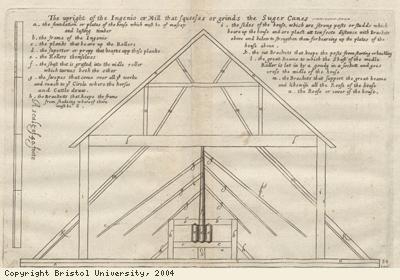 The upright of the Ingenio or Mill that squeses or grinds the Suger Canes
a. the foundation or plates of the house which must be of massey
and lasting timber
b. the frame of the Ingenio
c. the planks that beare up the Rollers
d. the suporter or propp that keeps up these planks
e. the Rollers themselves
f. the shaft that is grafted into the midle roller
which turnes both the other
g. the sweepes that come over all ye works
and reach to ye Circle where the horses
and Cattle draw.
h. the Brackets that keepe the frame
from shaking whereof there
must be 8
i. the sides of the house, which are strong posts or studds which
beare up the house and are plact att ten foote distance with brackets
above and below to strengthen them for bearing up the plates of the
house above
k. the out brackets that keepe the posts from starting or buckling
l. the great beame to which the Shaft of the midle
Roller is let in by a gudg in a sockett and goes
crosse the midle of the house
m. the Brackets that support the great beame
and likewise all the Roofe of the house
n. the Roofe or cover of the house.
A scale of 40 foote
Copyright Bristol University, 2004